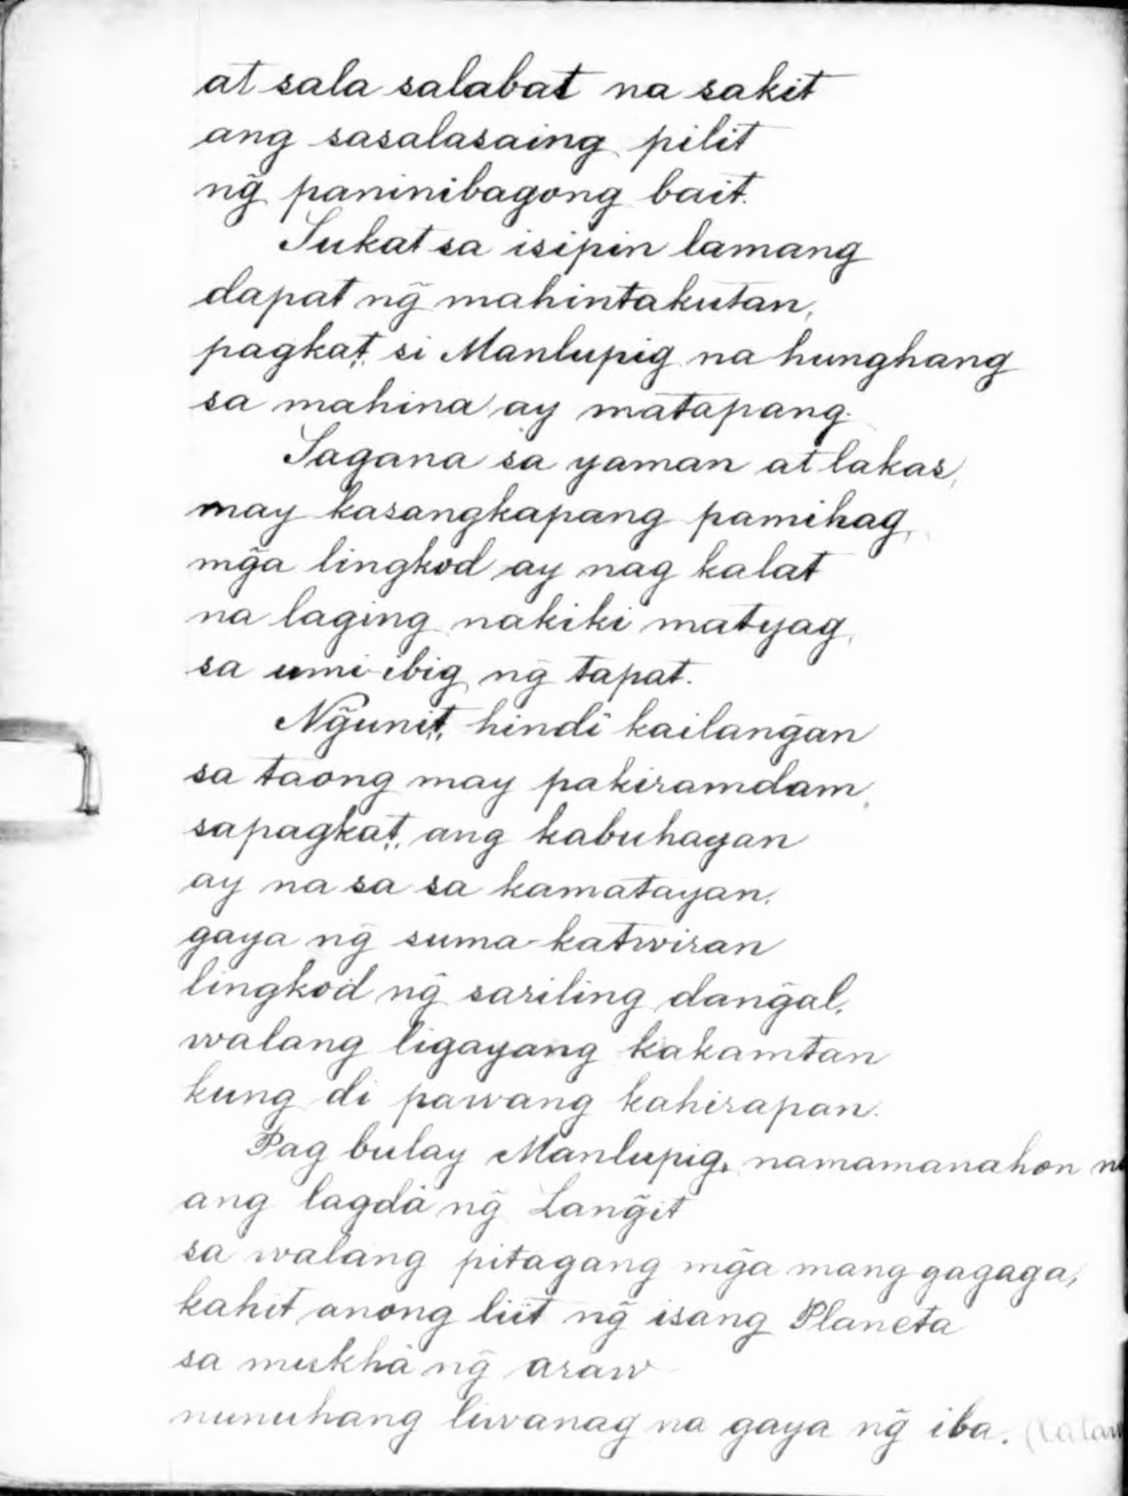 at sala salabat na sakit
ang sasalasaing pilit
ng̃ paninibagong bait.
Sukat sa isipin lamang
dapat ng̃ mahintakutan,
pagkat, si Manlupig na hunghang
sa mahina ay matapang.
Sagana sa yaman at lakas,
may kasangkapang pamihag,
mg̃a lingkod ay nag kalat
na laging nakiki matyag,
sa umi-ibig ng̃ tapat.
Ng̃unit, hindi kailang̃an
sa taong may pakiramdam,
sapagkat, ang kabuhayan
ay na sa sa kamatayan.
gaya ng̃ suma-katwiran
lingkod ng̃ sariling dang̃al,
walang ligayang kakamtan
kung di pawang kahirapan.
Pag bulay Manlupig, namamanahon
ang lagdà ng̃ Lang̃it
sa walang pitagang mg̃a mang-gagaga,
kahit anong liit ng̃ isang Planeta
sa mukhà ng̃ araw
nunuhang liwanag na gaya ng̃ iba.